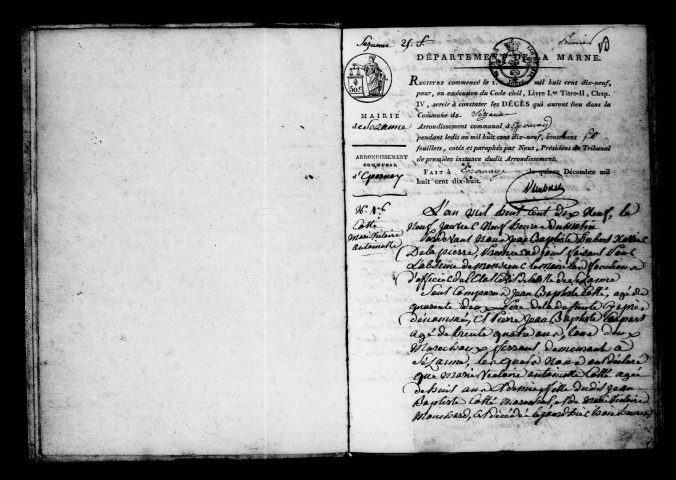 Sezanne 25. f. Premier
DÉPARTEMENT DE LA MARNE.
REGISTRE commencé le 1.er Janvier mil huit cent dix-neuf,
pour, en exécution du Code civil, Livre I.er Titre II, Chap.
IV, servir à constater les DÉCÈS qui auront lieu dans la
Commune de Sézanne
Arrondissement communal d'Epernay
pendant ledit an mil huit cent dix-neuf, contenant
feuillets, cotés et paraphés par Nous, Président du Tribunal
de première instance dudit Arrondissement.
FAIT à Epernay le quinze Décembre mil
huit cent dix-huit.
50c
MAIRIE
de Sezanne
ARRONDISSEMENT
COMMUNAL
d'Epernay
N.º 1.er
Cotté
Marie Victoire
antoinette
L'an mil huit cent dix Neuf, le
Neuf Janvier Neuf heure du matin
Pardevant Nous Jean Baptiste hubert
Delapierre, Premier adjoint faisant Vu
L'absence de monsieur le maire les fonctions
d'officier de l'Etat Civil de la Ville de Sezanne
Sont Comparus Jean Baptiste Cotté, agé de
quarante deux Père de la defunte Ci après
dénommée, Et Pierre Jean Baptiste
agé de trente quatre ans, tous deux
Marechaux ferrant demeurant à
Sézanne, lesquels Nous ont declaré
que Marie Victoire antoinette Cotté agée
de huit ans Et demi, fille dudit Jean
Baptiste Cotté marechal, et de Marie Victoire
Blanchard, Est décédée